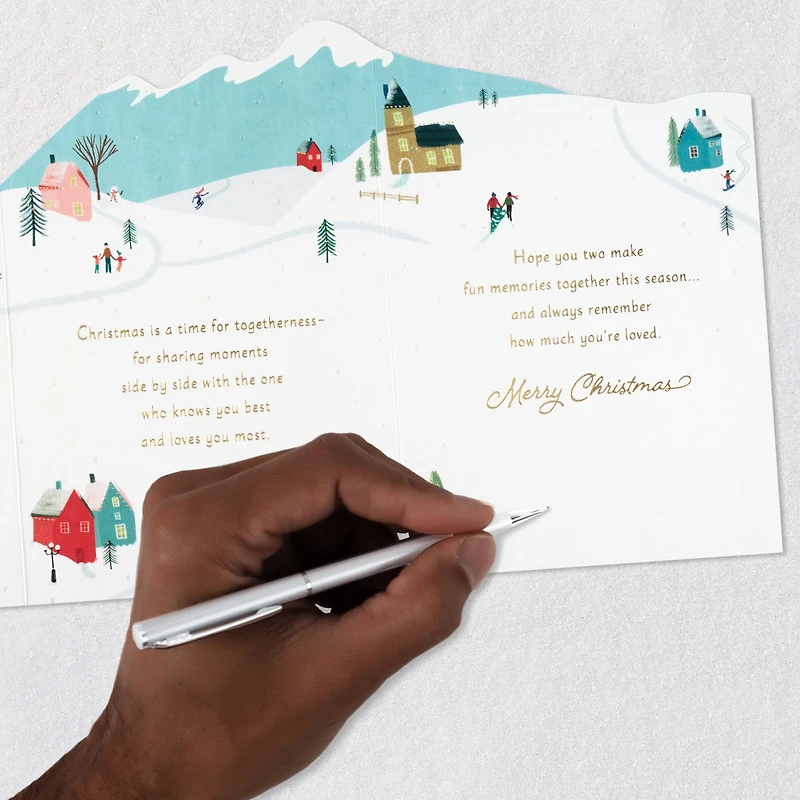 Christmas is a time for togetherness–
for sharing moments
side by side with the one
who knows you best
and loves you most.
Hope you two make
fun memories together this season...
and always remember
how much you're loved.
Merry Christmas